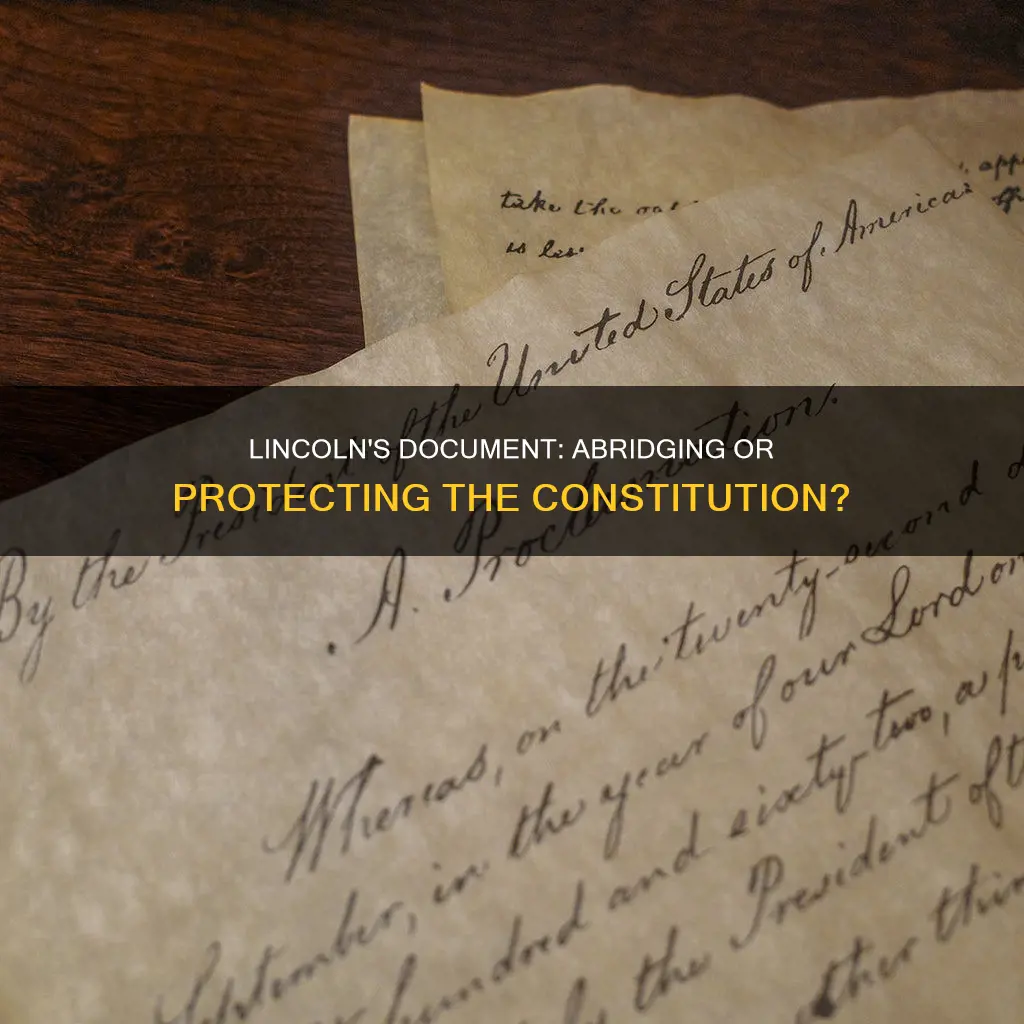 take the
By the President of the United States of America:
LINCOLN'S DOCUMENT: ABRIDGING OR
PROTECTING THE CONSTITUTION?
A. Proclamation.
Whereas, on the twenty-second d
September, in the year of our Lord on
hundred and sixty-two, a p
by the President of the
other thin